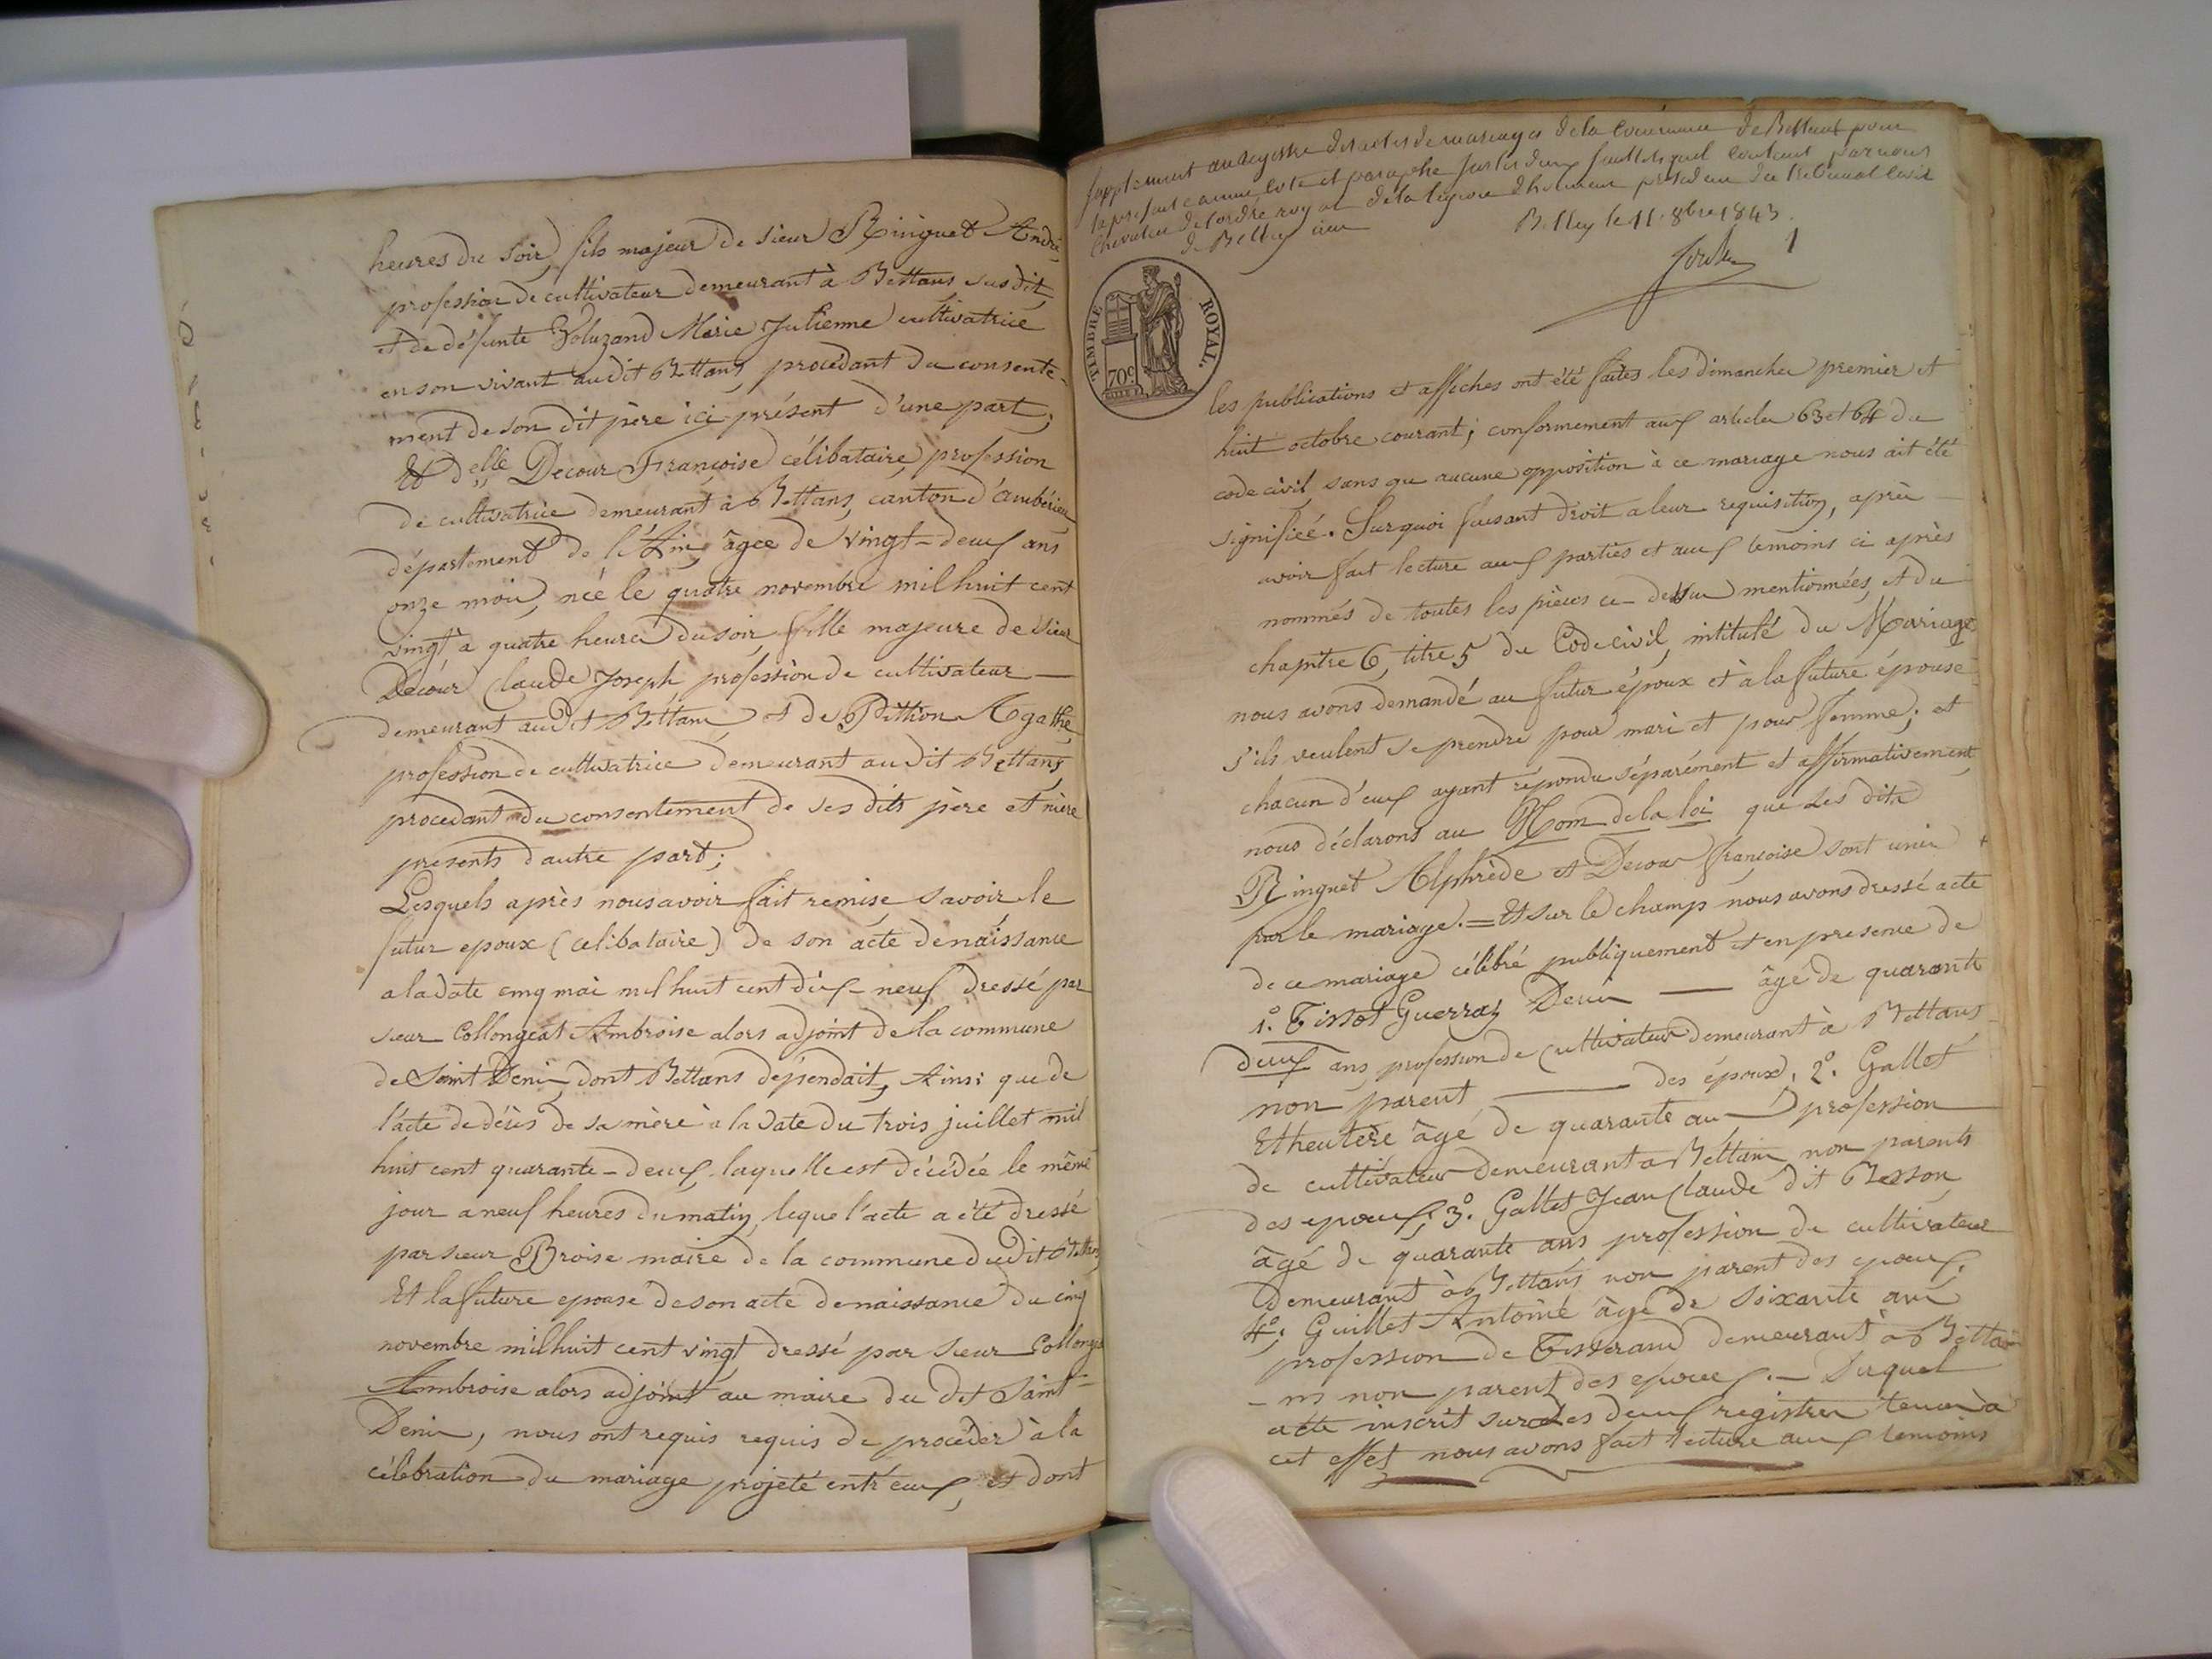 heures du soir, fils majeur de sieur Ringuet André
profession de cultivateur demeurant à Bettans susdit,
et de défunte Voluzand Marie Julienne cultivatrice
en son vivant audit Bettans, procédant du consente-
ment de son dit père ici présent d'une part,
Et delle Decour Françoise célibataire, profession
de cultivatrice demeurant à Bettans, canton d'ambérieu
département de l'Ain, âgée de vingt-deux ans
onze mois, née le quatre novembre mil huit cent
vingt à quatre heures du soir, fille majeure de sieur
Decour Claude Joseph profession de cultivateur
demeurant audit Bettans, et de Pittion Agathe,
profession de cultivatrice demeurant audit Bettans,
procedant du consentement de ses dits père et mère
présents d'autre part;
Lesquels après nous avoir fait remise savoir le
futur epoux (celibataire) de son acte de naissance
a la date cinq mai mil huit cent dix-neuf dressé par
sieur Collongeat Ambroise alors adjoint de la commune
de Saint Denis, dont Bettans dépendait, Ainsi que de
l'acte de décès de sa mère à la date du trois juillet mil
huit cent quarante-deux, laquelle est décédée le même
jour a neuf heures du matin, leque l'acte a été dressé
par sieur Broise maire de la commune du dit Bettans
Et la future epouse de son acte de naissance du cinq
novembre mil huit cent vingt dressé par sieur Collongeat
Ambroise alors adjoint au maire du dit Saint-
Denis, nous ont requis requis de procéder à la
célébration du mariage projeté entr'eux, et dont
Supplement au registre des actes de mariages de la Commune de Bettans pour
la présente année coté et paraphé sur les deux feuillets quel contient par nous
Chevalier de l'ordre royal de la légion d'honneur président du tribunal civil
de Belley ain
Belley le 11 8bre 1843
1
TIMBRE ROYAL.
70c
les publications et affiches ont été faites les dimanches premier et
huit octobre courant; conformement aux articles 63 et 64 du
code civil, sans que aucune opposition à ce mariage nous ait été
signifiée. Sur quoi faisant droit a leur requisition, après
avoir fait lecture aux parties et aux temoins ci après
nommés de toutes les pièces ce dessus mentionnées, et du
chapitre 6, titre 5 du Code civil, intitulé du Mariage,
nous avons demandé au futur époux et à la future épouse
s'ils veulent se prendre pour mari et pour femme; et
chacun d'eux ayant répondu séparément et affirmativement,
nous déclarons au Nom de la loi que les dits
Ringuet Alphrède et Decour françoise sont unis
par le mariage. = Et sur le champ nous avons dressé acte
de ce mariage célébré publiquement et en presence de
1o. Tissot Guerraz Denis — âgé de quarante
deux ans, profession de Cultivateur demeurant à Bettans
non parent — des époux, 2o. Gallet
Etheutère âgé de quarante ans profession
de cultivateur demeurant a Bettans non parents
des epoux, 3o. Gallet Jean Claude dit Besson,
âgé de quarante ans profession de cultivateur
Demeurant à Bettans non parent des epoux,
4o: Guillet Antoine âgé de soixante ans
profession de Tisserand demeurant à Betta
- ns non parent des epoux. — Duquel
acte inscrit sur les deux registres tenus à
cet effet nous avons fait lecture aux temoins